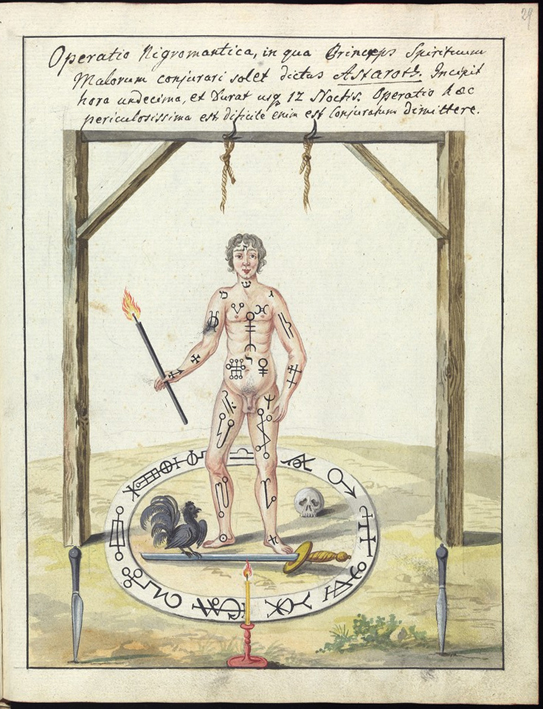 29
Operatio Nigromantica, in qua Princeps Spirituum
Malorum conjurari solet dictus Astaroth. Incipit
hora undecima, et Durat usq 12 Noctis. Operatio haec
periculosissima est dificile enim est Conjuratum dimittere.